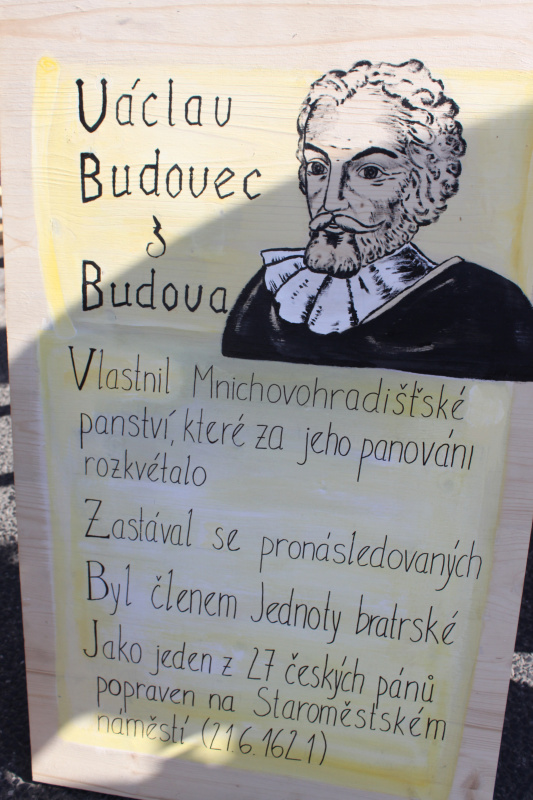 Václav
Budovec
z
Budova
Vlastnil Mnichovohradišťské
panství, které za jeho panování
rozkvétalo
Zastával se pronásledovaných
Byl členem Jednoty bratrské
Jako jeden z 27 českých pánů
popraven na Staroměstském
náměstí (21.6.1621)